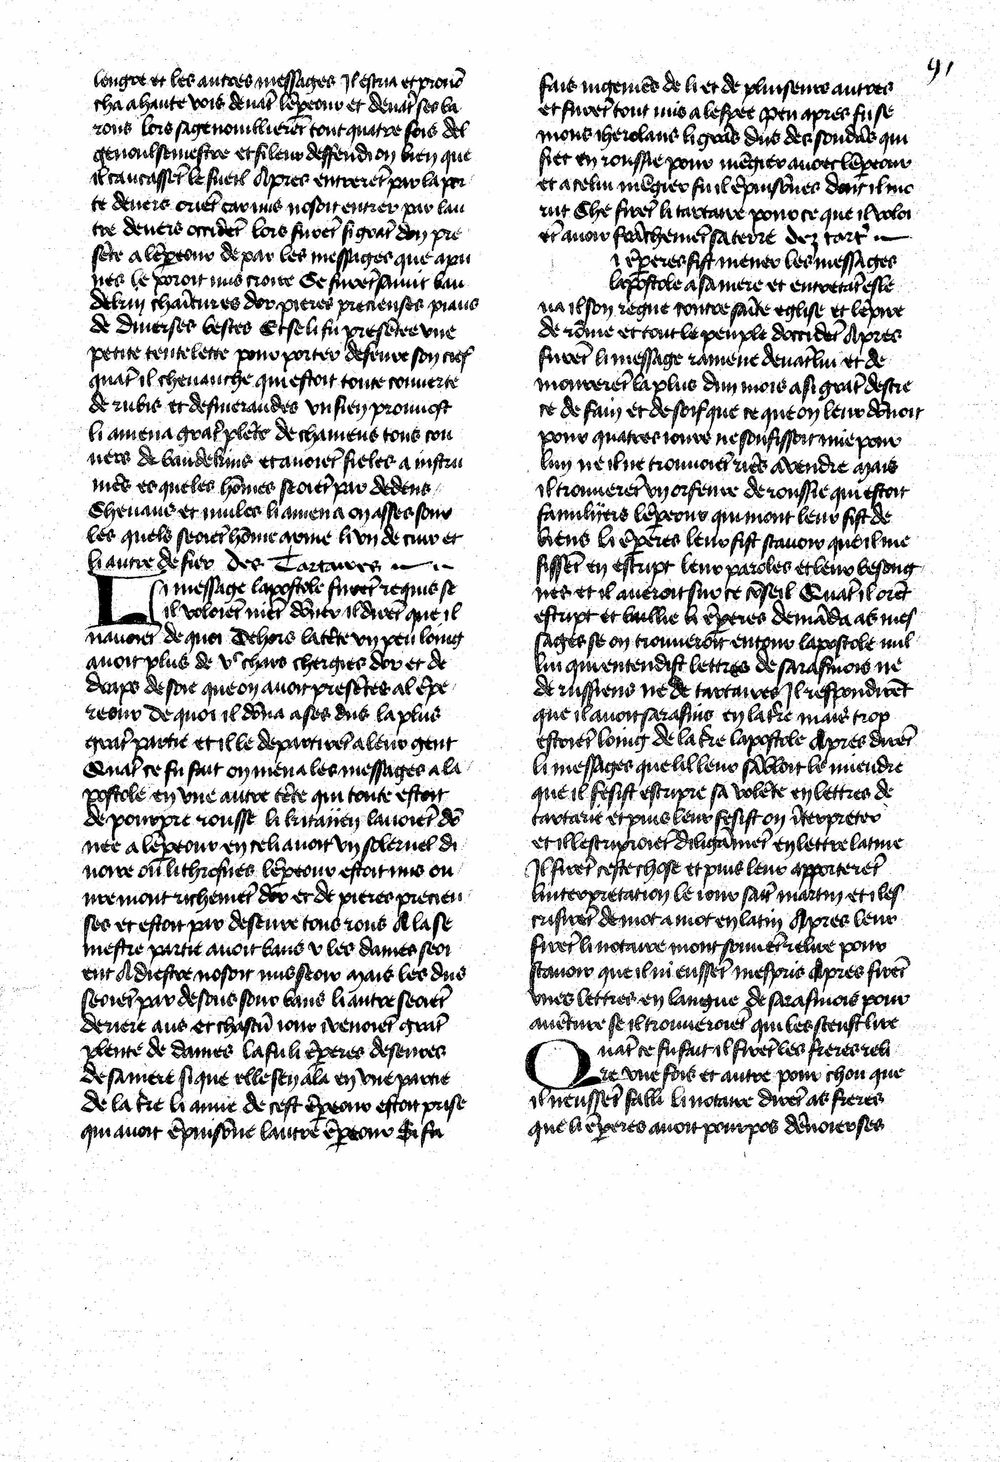 91
lengre et les autres messages Il escria et pronō
cha a haute vois deuāt lēpeour et deuāt ses ba
rons lors sagenoullierēt tout quatre fois del
genoul senestre et si leur deffendi on bien que
il caucassēt le sueil Apres entrerēt par la por
te deuers oriēt car nus nosoit entrer par lau
tre deuers occidēt lors furēt si grāt don pre
sēte a lēpeour de par les messages que a pai
nes le poroit nus croire Ce furēt samit bau
dekin chaintures dor pieres precieuses piaus
de diuerses bestes Et se li fu presētee vne
petite tentelette pour porter deseure son cief
quāt il cheuauche qui estoit toute couuerte
de rubis et desmeraudes vn sien prouuost
li amena grāt plēte de chameus tous cou
uers de baudekins et auoiēt sieles a instru
mēs es queles hōmes seoiēt par dedens
Cheuaus et mules li amena on asses sour
les quels seoiēt hōme arme li vn de cuir et
li autre de fier Des Tartares
Li message lapostole furēt requis se
il voloiēt niēt dōner il dirēt que il
nauoiēt de quoi Dehors la tēte vn peu loing
auoit plus de vᶜ chars chergies dor et de
draps de soie que on auoit presētes al ēpe
reour De quoi il dōna a ses dus la plus
grāt partie et il le departirēt a leur gent
Quāt ce fu fait on mena les messages a la
postole en vne autre tēte qui toute estoit
de pourpre rousse li kitaiien lauoiēt dō
nee a lēpeour en celi auoit vn soleruel di
uoire ou li throsnes lēpeour estoit mis ou
ure mout richement dor et de pieres precieu
ses et estoit par deseure tous rons A la se
nestre partie auoit bans v les dames seoi
ent A diestre nosoit nus seoir mais les dus
seoiēt par desous sour bans li autre seoiēt
deriere aus et chascū iour i venoiēt grāt
plente de dames La fu li ēperes deseures
de sa mere si que elle sen ala en vne partie
de la tre li ante de cest ēpeour estoit prise
qui auoit ēpuisōne lautre ēpeour Si fu
fais iugemēs de li et de pluiseurs autres
et furēt tout mis a lespee Peu apres fu se
mons iherolaus li grās dus des soudās qui
siet en roussie pour mēgier auoec lēpeour
et a celui mēgier fu il ēpuisōnes dont il mo
rut Che firēt li tartare pour ce que il voloi
ēt auoir frāchemēt sa terre Dez tart
i ēperes fist mener les messages
lapostole a sa mere et entretāt esle
ua il son regne contre saīte eglise et lēpire
de rōme et tout le peuple doccidēt Apres
furēt li message ramene deuāt lui et de
mourerēt la plus dun mois a si grāt destre
ce de fain et de soif que ce que on leur dōnoit
pour quatres iours ne soufissoit mie pour
lun ne il ne trouuoiēt riēs a vendre mais
il trouuerēt vn orfeure de roussie qui estoit
familijers lēpeour qui mout leur fist de
biens li ēperes leur fist scauoir que il me
sissēt en escript leur paroles et leur besong
nes et il aueroit sur ce cōseil Quāt il orēt
escript et baillie li ēperes demāda as mes
sages se on trouueroit entour lapostole nul
lui qui entendist lettres de sarasinois ne
de russiens ne de tartaires Il respondirēt
que il auoit sarasins en la tre mais trop
estoiēt loing de la tre lapostole Apres dirēt
li messages que lil leur sābloit le miendre
que il fesist escripre sa volēte en lettres de
tartarie et puis leur fesist on īterpreter
et il lescriproiēt diligāmēt en lettre latine
Il firēt ceste chose et puis leur apporterēt
linterpretation le iour saīt martin et il es
crisirēt de mot a mot en latin Apres leur
firēt li notaire mont souuēt relire pour
scauoir que il ni eussēt mespris Apres firēt
vnes lettres en langue de sarasinois pour
auēture se il trouueroiēt qui les sceust lire
Quāt ce fu fait il firēt les freres reli
re vne fois et autre pour chou que
il neussēt falli li notaire dirēt as freres
que li ēperes auoit pourpos dēuoier ses